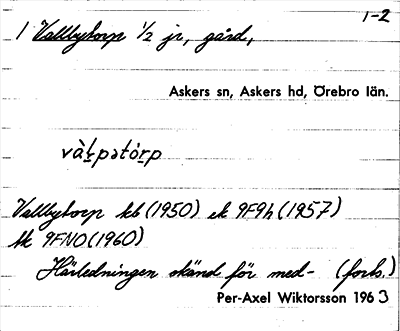 1-2
1 Vallbytorp 1/2 jr, gård,
Askers sn, Askers hd, Örebro län.
Vallbytorp kb (1950) ek 9F9h (1957)
tk 9FNO (1960)
Härledningen okänd för med- (forts.)
Per-Axel Wiktorsson 1963